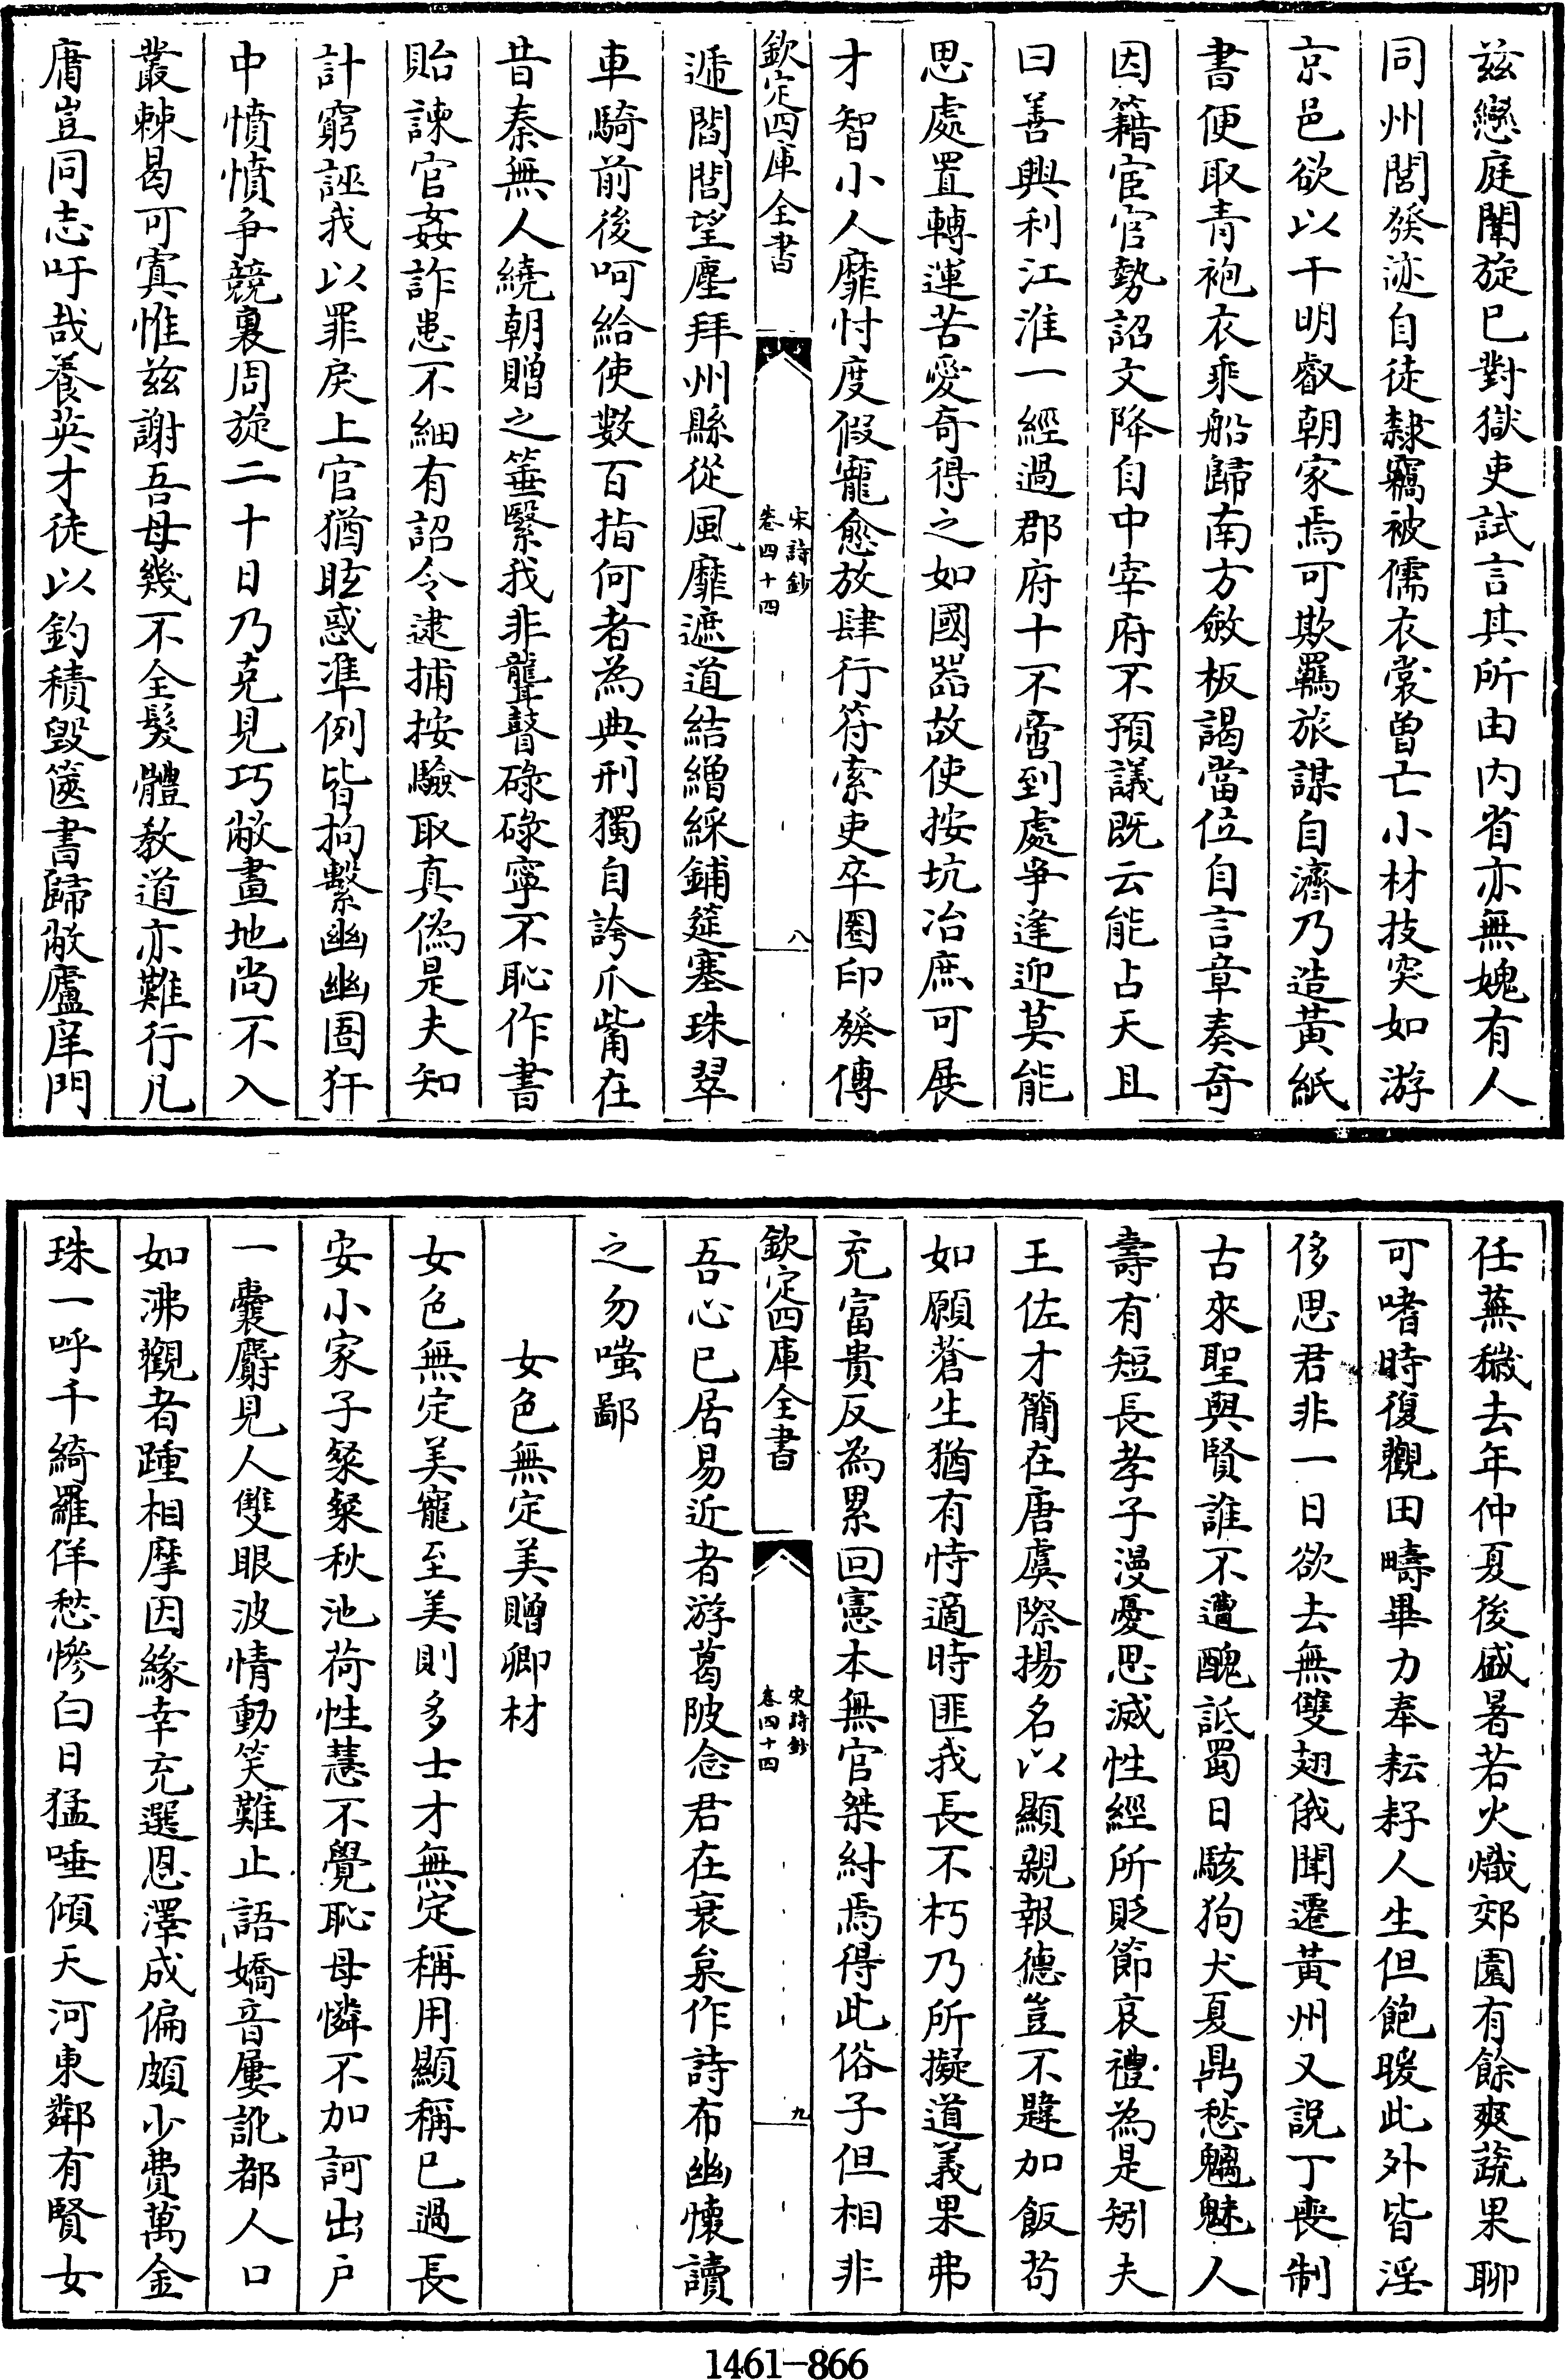 茲戀庭闈旋已對獄吏試言其所由内省亦無媿有人
同州閭發迹自徒隸竊被儒衣裳曽亡小材技突如游
京邑欲以干明叡朝家焉可欺羈旅謀自濟乃造黃紙
書便取青袍衣乘船歸南方斂板謁當位自言章奏奇
因籍宦官勢詔文降自中宰府不預議既云能占天且
曰善興利江淮一經過郡府十不啻到處爭逢迎莫能
思處置轉運苦愛奇得之如國器故使按坑冶庶可展
才智小人靡忖度假寵愈放肆行符索吏卒圏印發傳
欽定四庫全書
宋詩鈔
卷四十四
八
遞閻閭望塵拜州縣從風靡遮道結繒綵鋪筵塞珠翠
車騎前後呵給使數百指何者為典刑獨自誇爪觜在
昔秦無人繞朝贈之箠繄我非聾瞽碌碌寧不恥作書
貽諫官姦詐患不細有詔令逮捕按驗取真偽是夫知
計窮誣我以罪戾上官猶眩惑凖例皆拘繫幽幽圄犴
中憤憤争競裏周旋二十日乃克見巧敝畫地尚不入
叢棘曷可寘惟兹謝吾母幾不全髮體教道亦難行凡
庸豈同志吁哉養英才徒以釣積毀篋書歸敝廬庠門
任蕪穢去年仲夏後盛暑若火熾郊園有餘爽蔬果聊
可嗜時復觀田疇畢力奉耘耔人生但飽暖此外皆淫
侈思君非一日欲去無雙翅俄聞遷黃州又説丁喪制
古來聖與賢誰不遭醜詆蜀日駭狗犬夏鼎愁魑魅人
壽有短長孝子漫憂思滅性經所貶節哀禮為是矧夫
王佐才簡在唐虞際揚名以顯親報德豈不韙加飯苟
如願蒼生猶有恃適時匪我長不朽乃所擬道義果弗
充富貴反為累回憲本無官桀紂焉得此俗子但相非
欽定四庫全書
宋詩鈔
卷四十四
九
吾心已居易近者游葛陂念君在衰㡯作詩布幽懷讀
之勿嗤鄙
女色無定美贈卿材
女色無定美寵至美則多士才無定稱用顯稱已過長
安小家子粲粲秋池荷性慧不覺恥母憐不加訶出戶
一囊麝見人雙眼波情動笑難止語嬌音屢訛都人口
如沸觀者踵相摩因緣幸充選恩澤成偏頗少費萬金
珠一呼千綺羅佯愁慘白日猛唾傾天河東鄰有賢女
1461-866